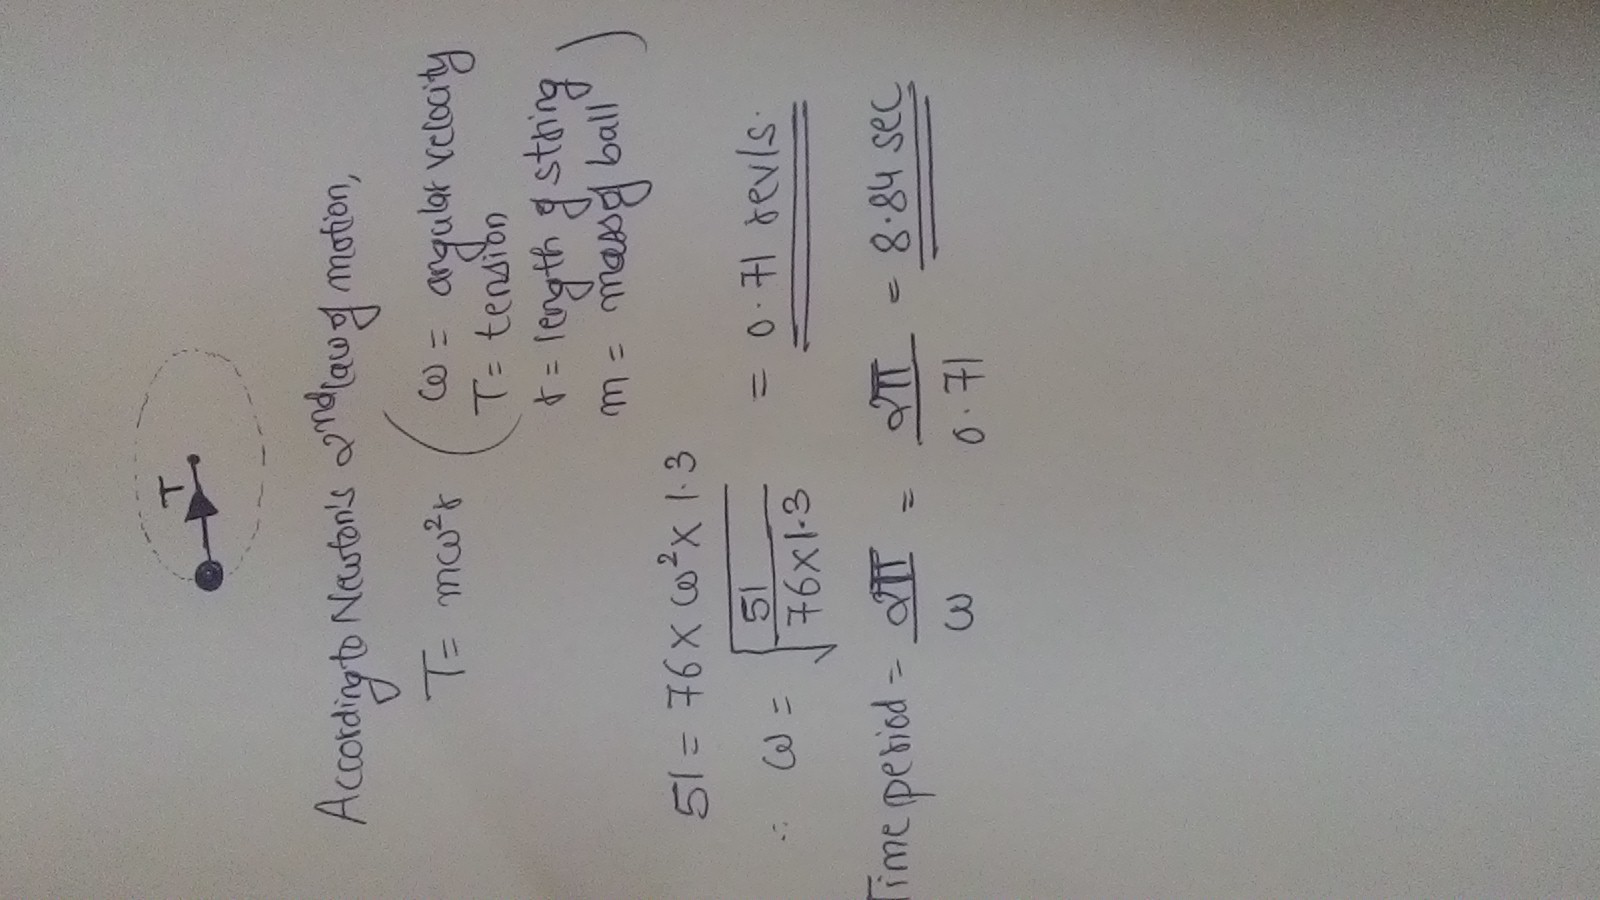 T
According to Newton's 2nd law of motion,
T = mω²r ( ω = angular velocity
T = tension
r = length of string
m = mass of ball )
51 = 76 × ω² × 1.3
∴ ω = √(51 / 76×1.3) = 0.71 rev/s.
Time period = 2π/ω = 2π/0.71 = 8.84 sec